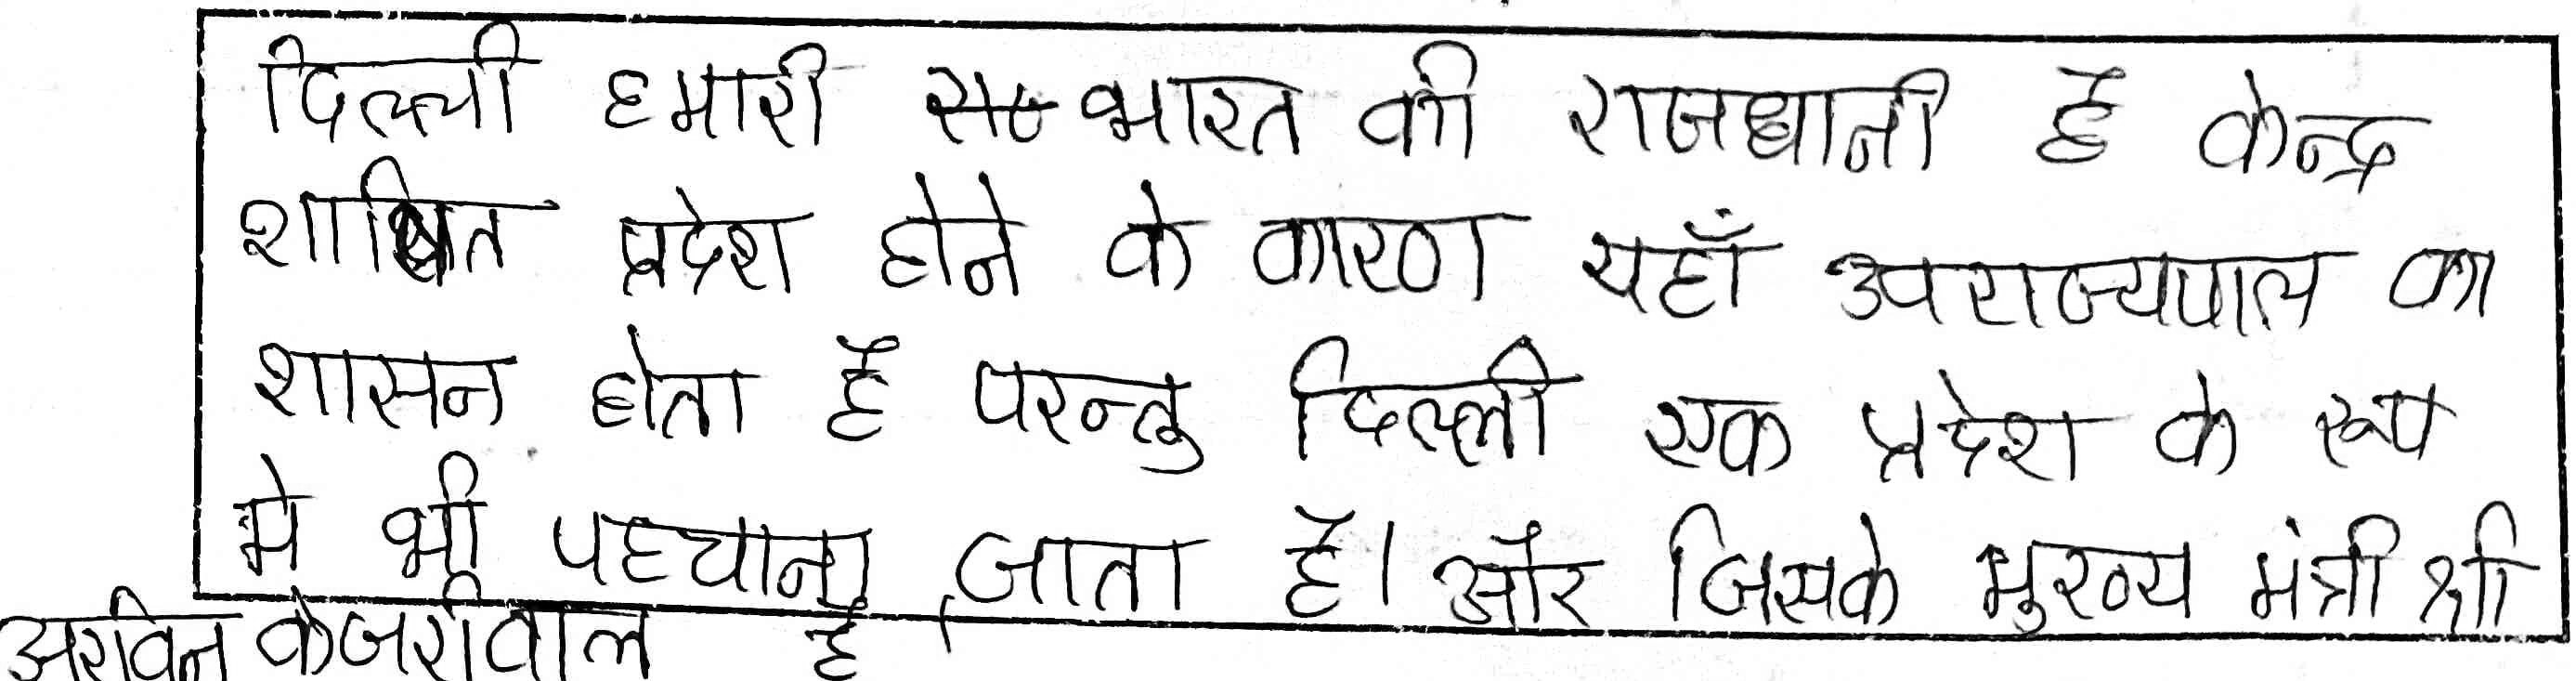 दिल्ली हमारी भारत की राजधानी है केन्द्र
शासित प्रदेश होने के कारण यहाँ उपराज्यपाल का
शासन होता है परन्तु दिल्ली एक प्रदेश के रूप
मे भी पहचाना जाता है। और जिसके मुख्य मंत्री श्री
अरविन केजरीवाल है।